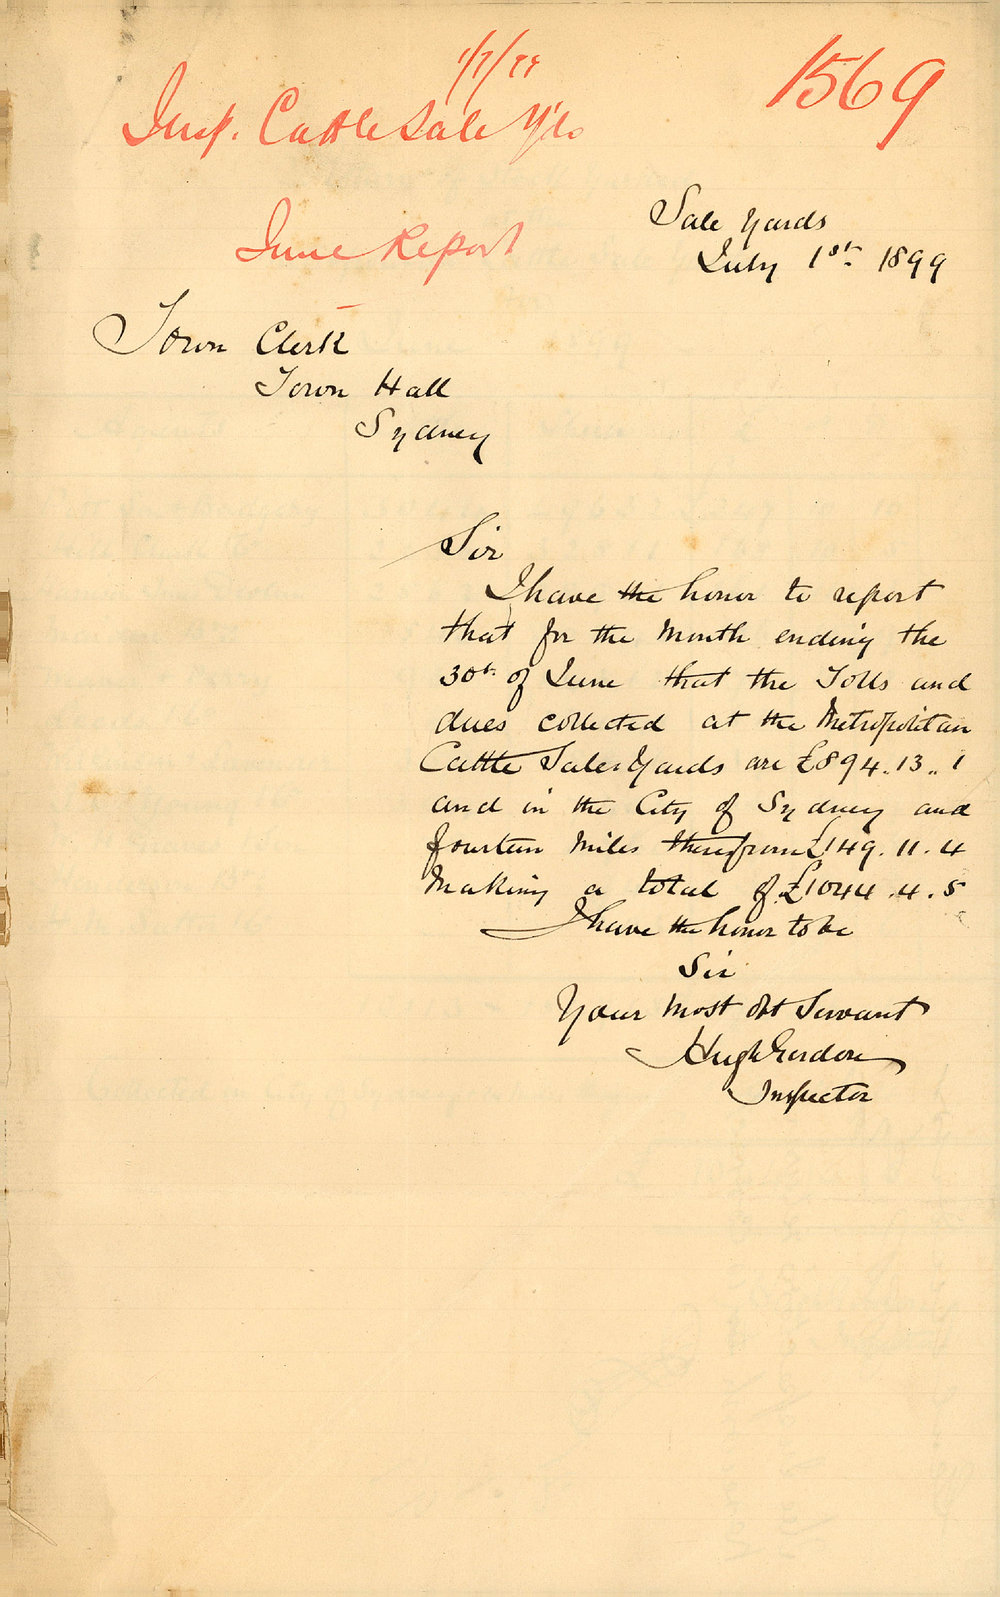 1/7/99
1569
Insp. Cattle Sale Yds
Sale Yards
July 1st 1899
June Report
Town Clerk
Town Hall
Sydney
Sir
I have the honor to report
that for the Month ending the
30th of June that the Tolls and
dues collected at the Metropolitan
Cattle Sales Yards are £894.13.1
and in the City of Sydney and
fourteen Miles therefrom £149.11.4
Making a total of £1044.4.5
I have the honor to be
Sir
Your Most Obt Servant
Hugh Gordon
Inspector